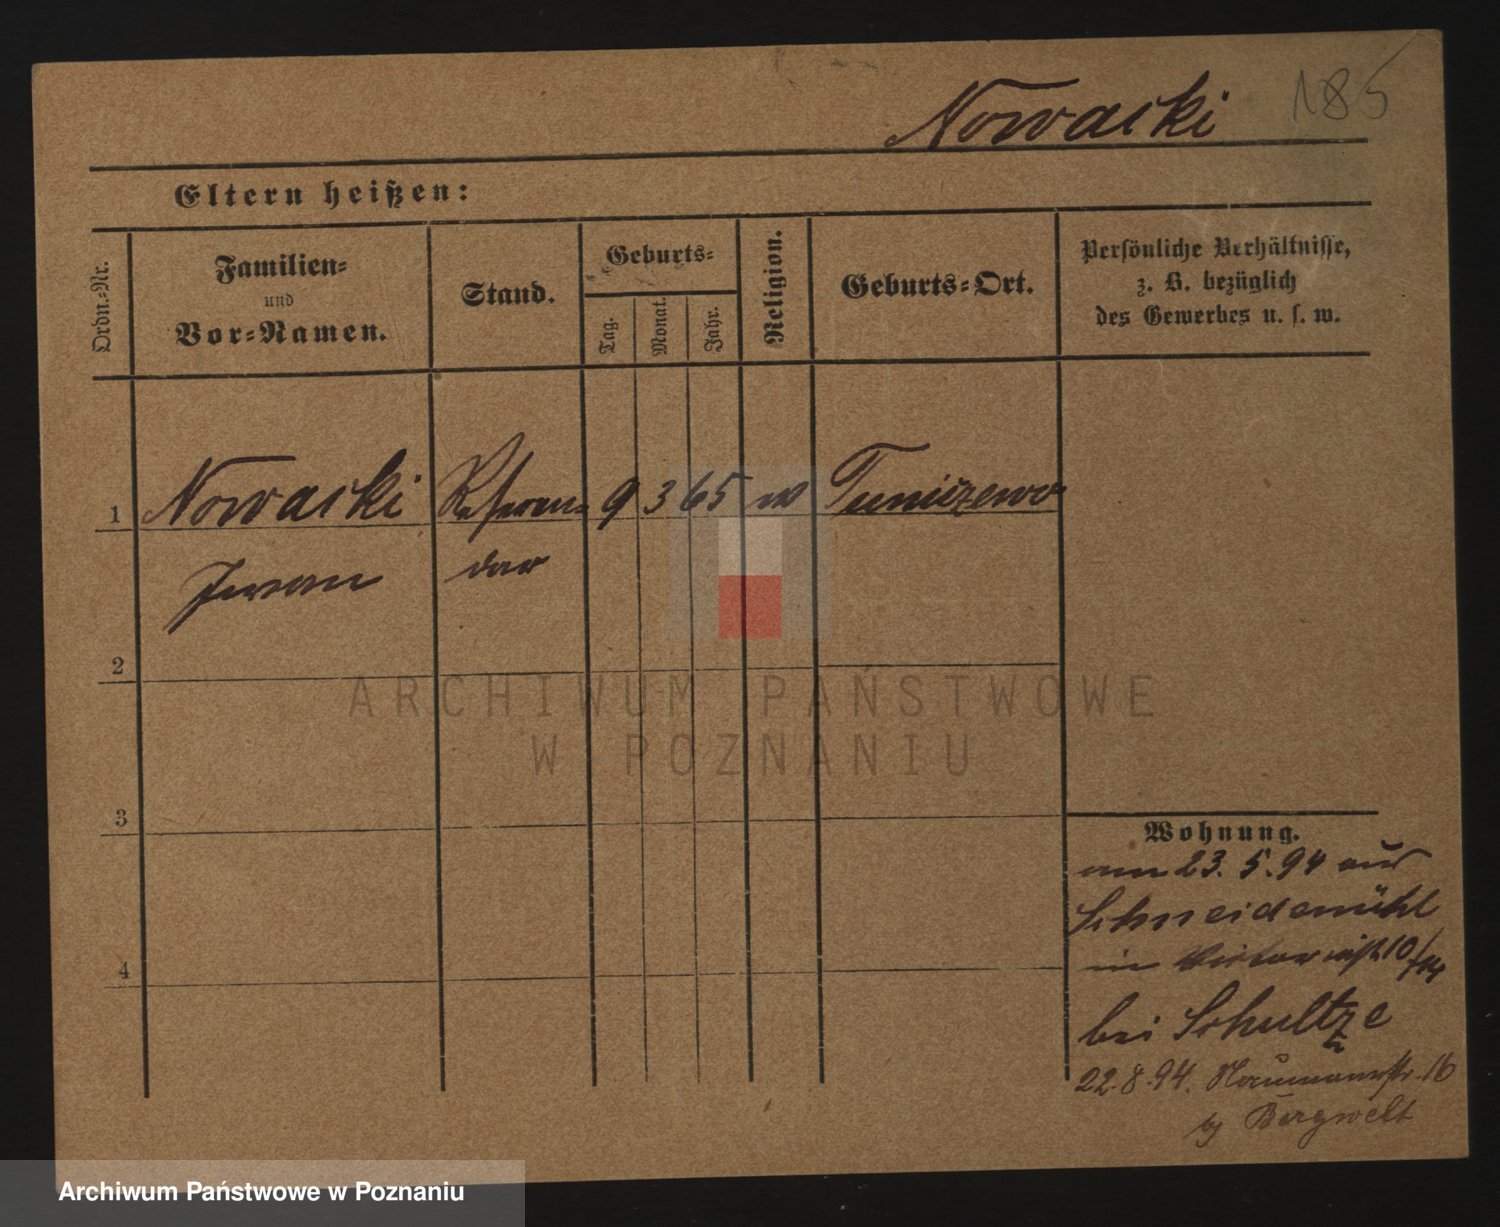 185
Nowacki
Eltern heißen:
Ordn.-Nr.
Familien-
und
Vor-Namen.
Stand.
Geburts-
Tag.
Monat.
Jahr.
Religion.
Geburts-Ort.
Persönliche Verhältnisse,
z. B. bezüglich
des Gewerbes u. s. w.
1
Nowacki
Referen-
dar
9 3 65
2
3
4
Wohnung.
am 23. 5. 94 aus
Schneidemühl
in 10/14
bei Schultze
22.8.94. Naumannstr. 16
b/ Bergwelt
ARCHIWUM PAŃSTWOWE
W POZNANIU
Archiwum Państwowe w Poznaniu